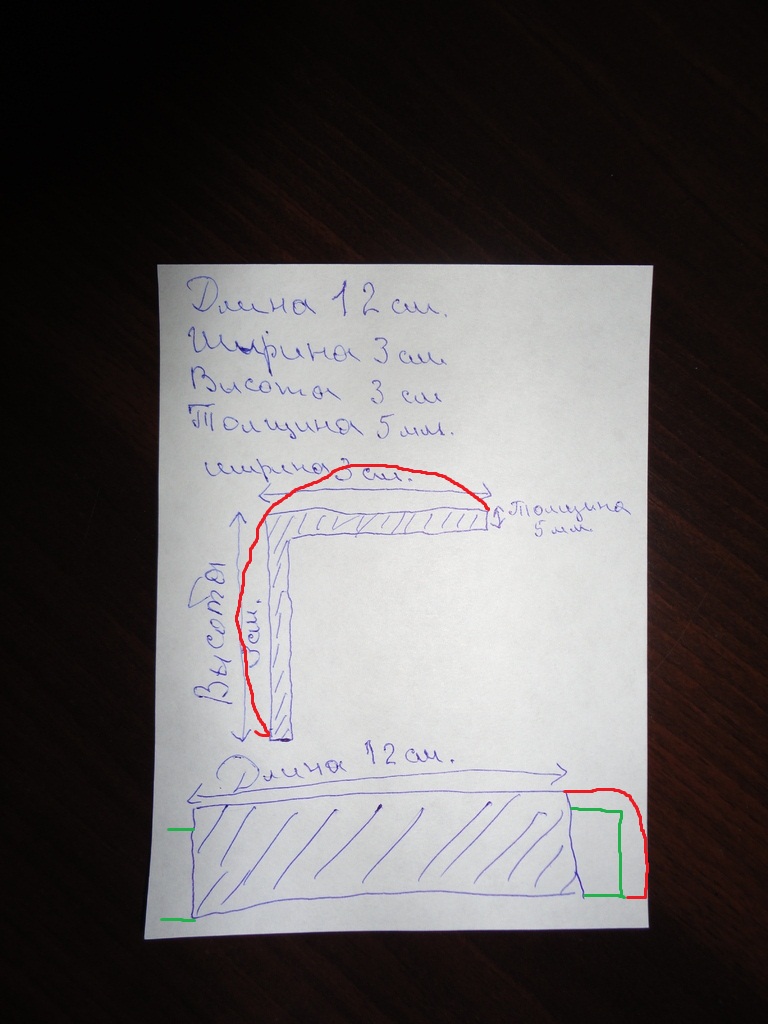 Длина 12 см.
Ширина 3 см
Высота 3 см
Толщина 5 мм.
ширина 3 см.
Толщина
5 мм
Высота
3 см.
Длина 12 см.